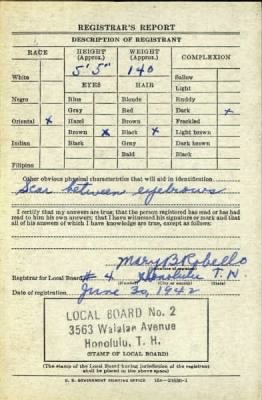 REGISTRAR'S REPORT
DESCRIPTION OF REGISTRANT
RACE HEIGHT (Approx.) WEIGHT (Approx.) COMPLEXION
5' 5" 140
White Sallow
EYES HAIR Light
Negro Blue Blonde Ruddy
Gray Red Dark x
Oriental x Hazel Brown Freckled
Brown x Black x Light brown
Indian Black Gray Dark brown
Bald Black
Filipino
Other obvious physical characteristics that will aid in identification
Scar between eyebrows
I certify that my answers are true; that the person registered has read or has had
read to him his own answers; that I have witnessed his signature or mark and that
all of his answers of which I have knowledge are true, except as follows:
Mary B Robello
Registrar for Local Board # 4 Honolulu T. H.
(Number) (City or county) (State)
Date of registration June 30, 1942
LOCAL BOARD No. 2
3563 Waialae Avenue
Honolulu, T. H.
(STAMP OF LOCAL BOARD)
(The stamp of the Local Board having jurisdiction of the registrant
shall be placed in the above space)
U. S. GOVERNMENT PRINTING OFFICE